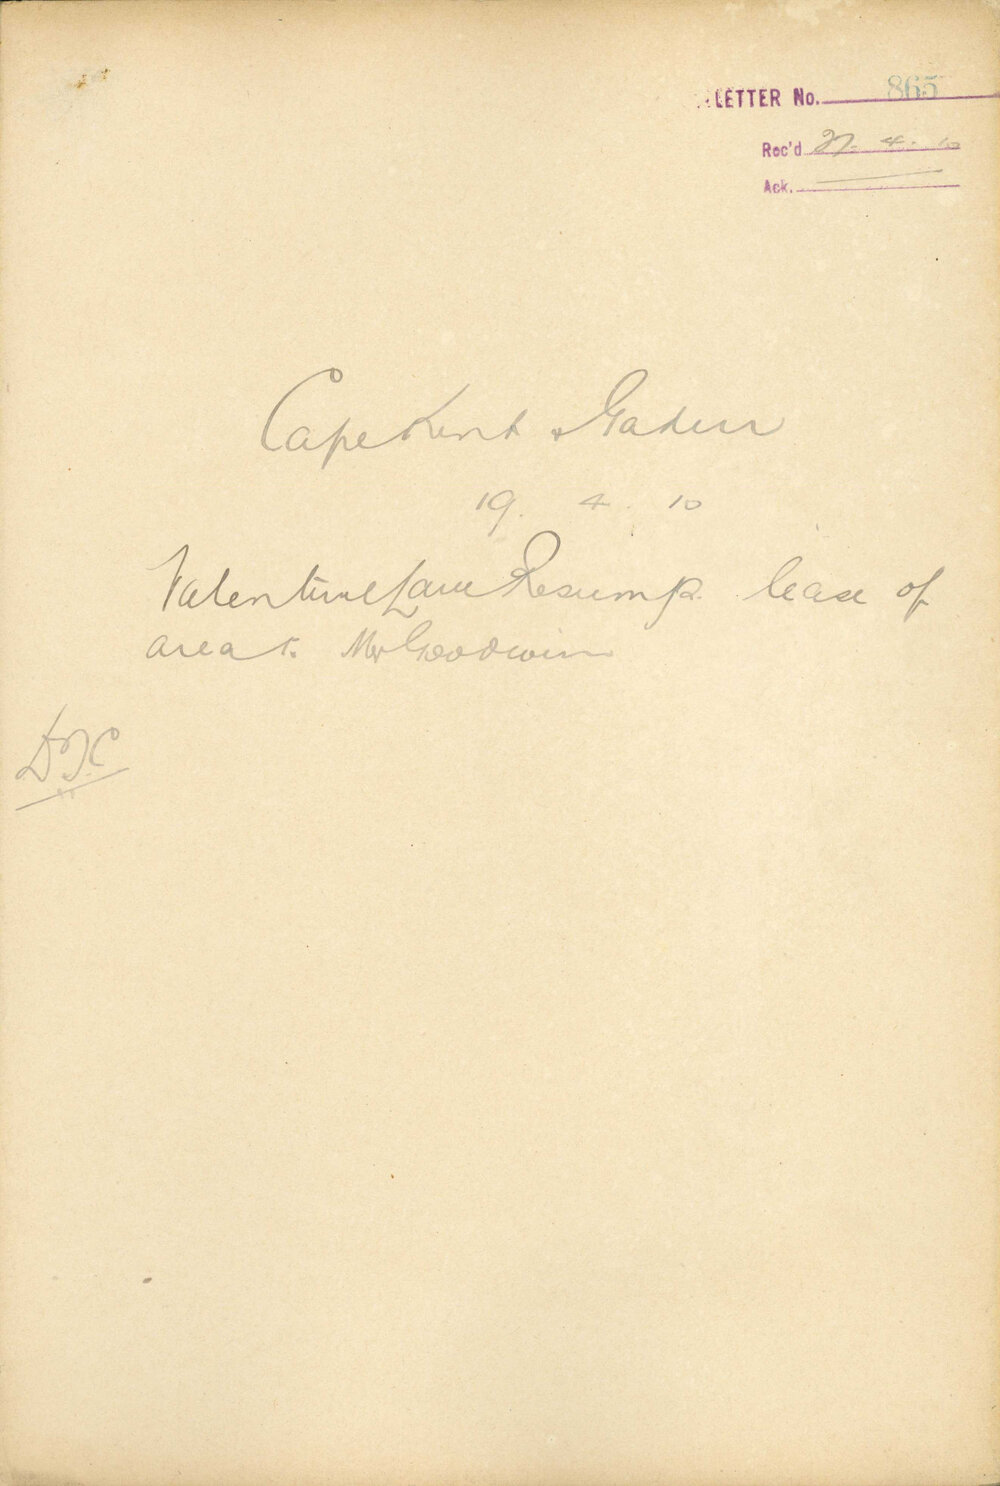 LETTER No. 865
Rec'd 27. 4. 10
Ack.
Cape Kent & Gaden
19. 4. 10
Valentine Lane Resump. lease of
area to Mr Goodwin